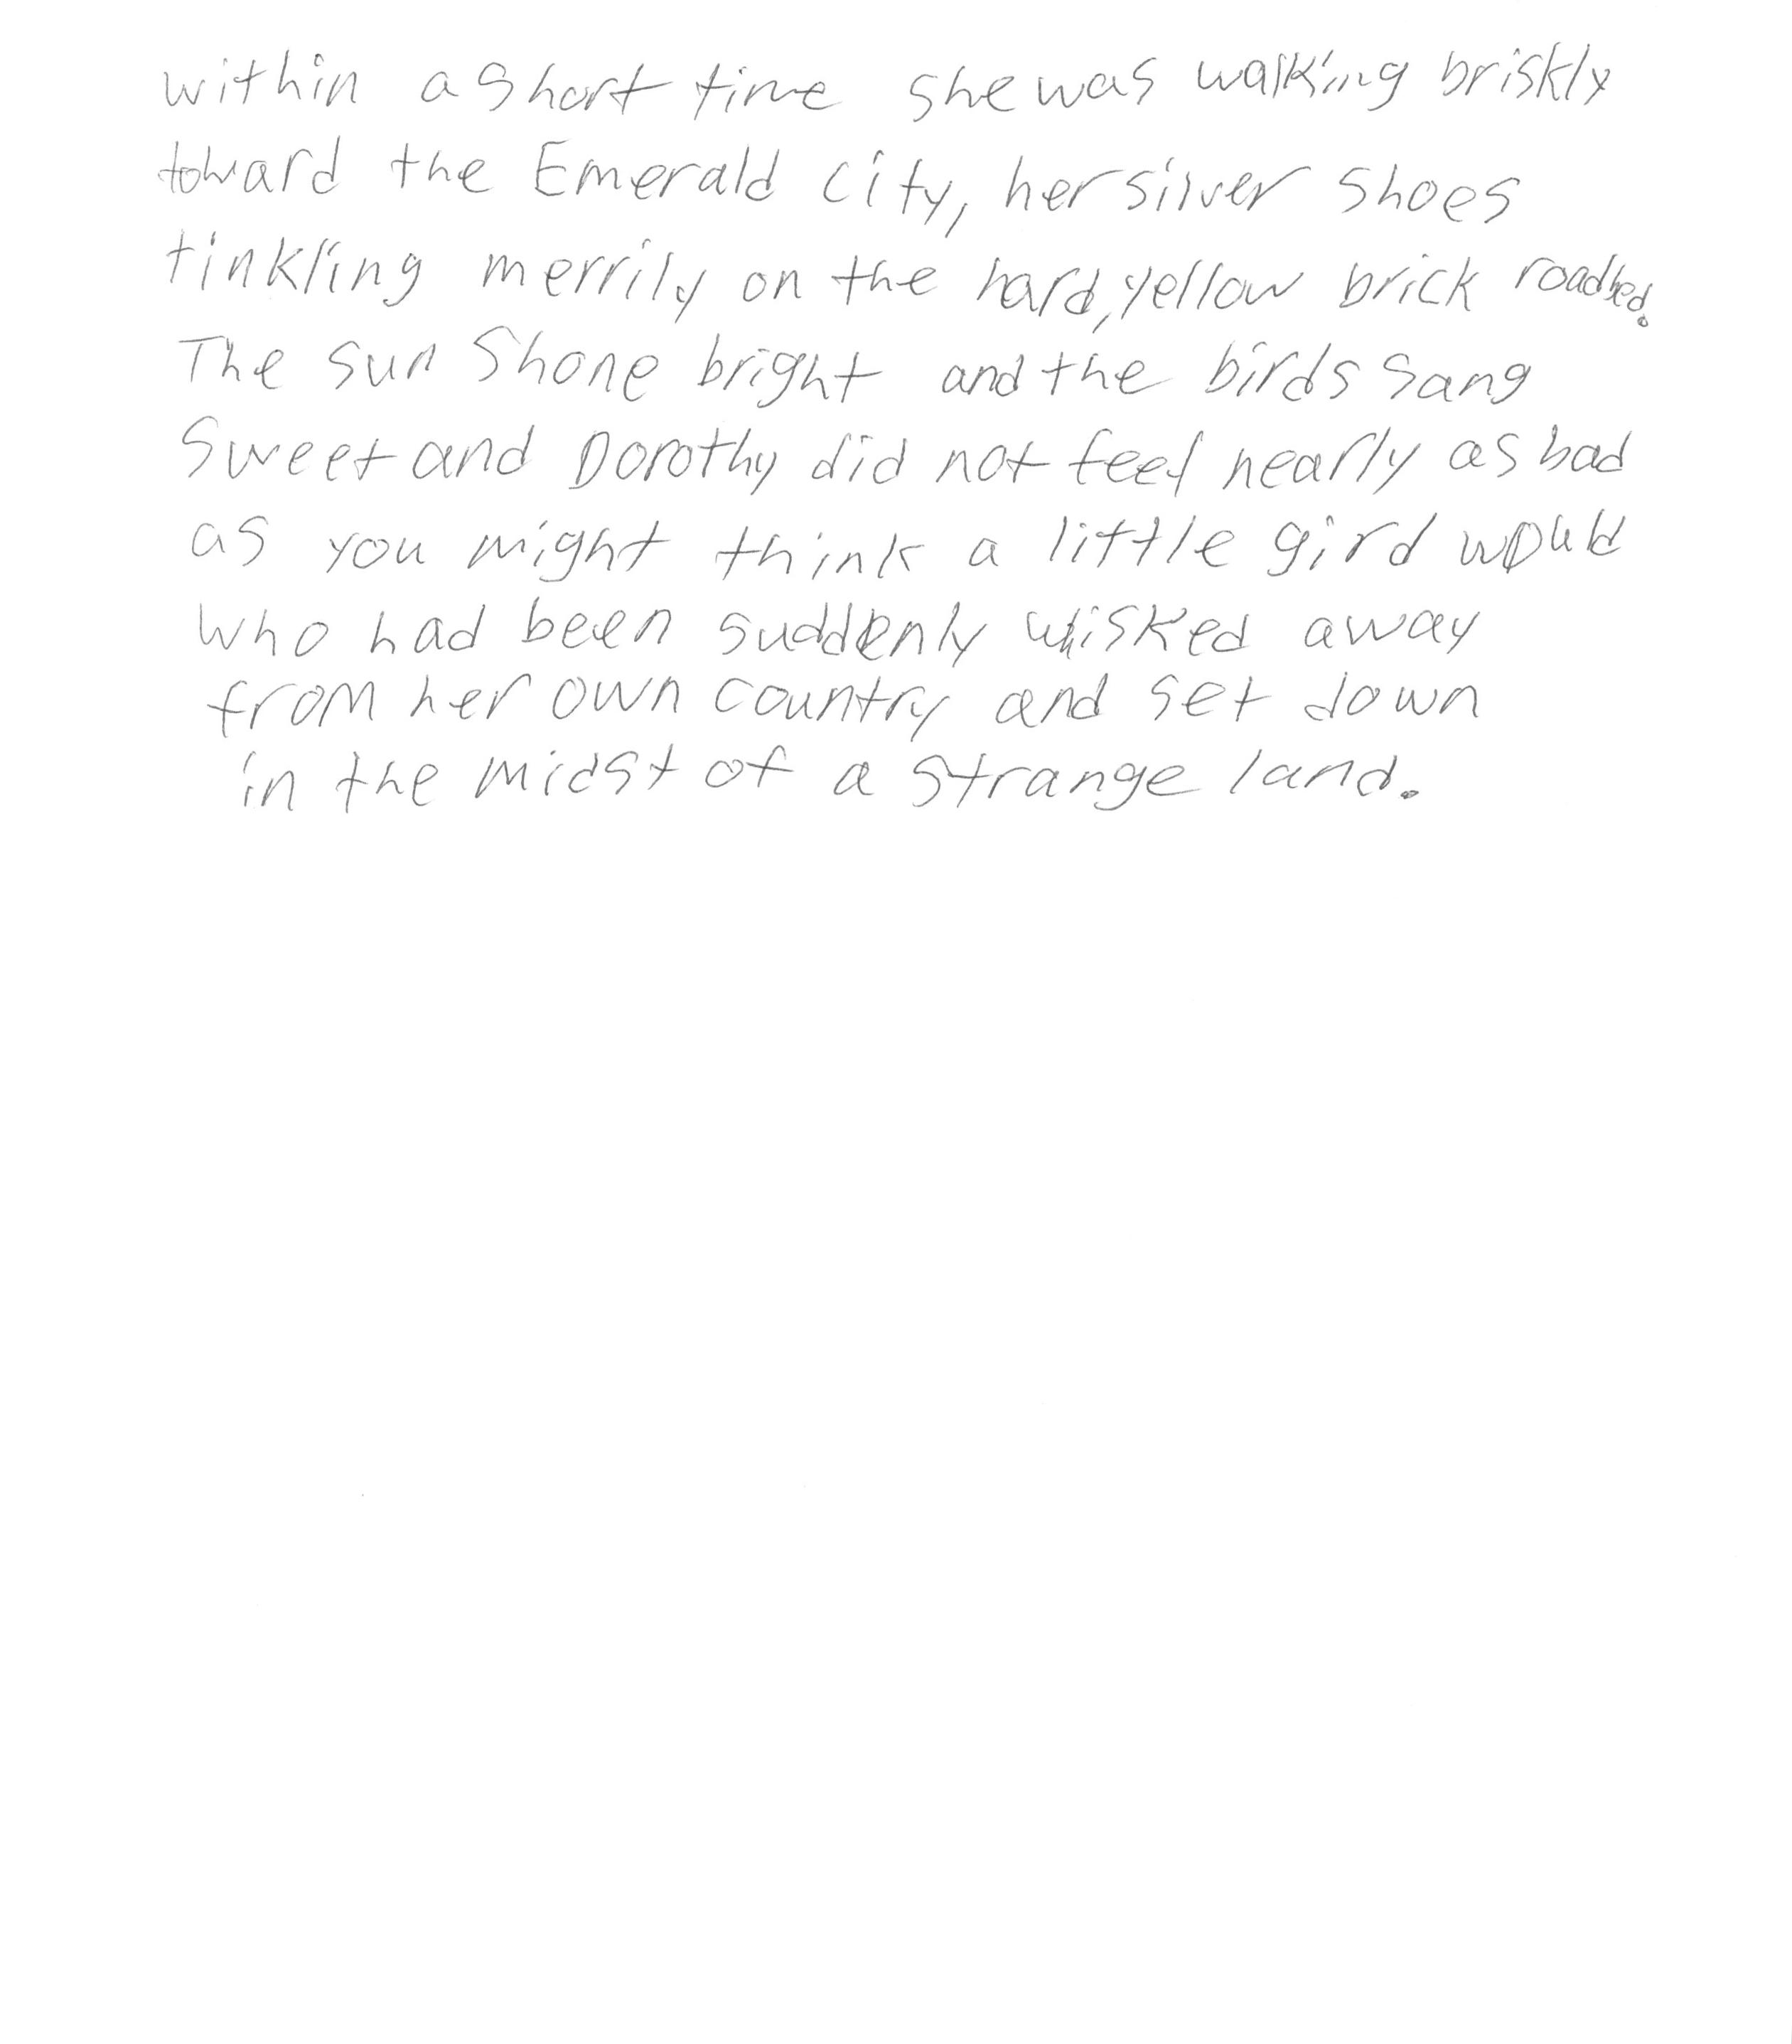 within a short time she was walking briskly
toward the Emerald City, her silver shoes
tinkling merrily on the hard, yellow brick roadbed.
The sun shone bright and the birds sang
sweet and Dorothy did not feel nearly as bad
as you might think a little gird would
who had been suddenly whisked away
from her own country and set down
in the midst of a strange land.